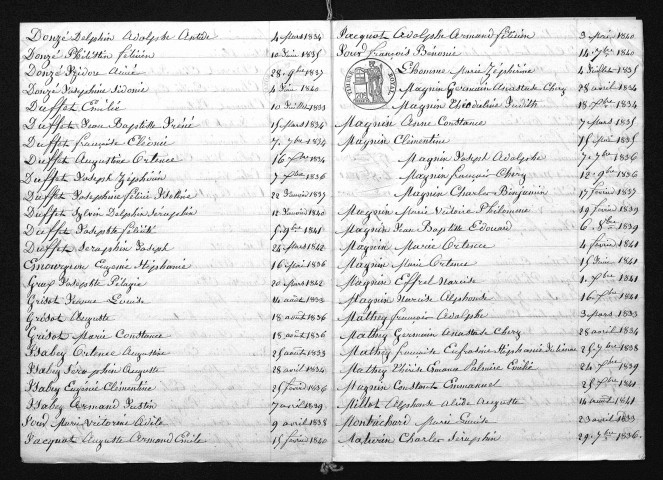 Donzé Delphin Adolphe Aristide 4 Mars 1834
Donzé Philistin félicien 10 Juin 1835
Donzé Isidore Aimé 28 9bre 1837
Donzé Josephine Sidonie 4 1840
Duffet Emilie 10 Juillet 1833
Duffet Jean Baptiste Iréné 15 Mars 1834
Duffet françoise Eléonie 7. 7bre 1834
Duffet Augustine Ortence 16 1834
Duffet Joseph Zéphirin 7 1836
Duffet Josephine félicie 22 1837
Duffet Sylvain Delphin Séraphin 12 1840
Duffet félicité 1841
Duffet Séraphin Joseph 24 Mars 1842
Eugenie Stéphanie 16 Mai 1836
Pélagie 20 Mars 1842
Grisot Jeanne Louise 14 août 1833
Grisot Auguste 18 août 1836
Grisot Marie Constance 18 août 1836
Isabey Ortence Augustine 25 août 1833
Isabey Séraphin Auguste 28 avril 1834
Isabey Eugénie Clémentine 25 février 1836
Isabey Armand Justin 7 avril 1839
Marie Victorine Adèle 9 avril 1838
Jacquot Auguste Armand Emile 15 février 1840
Jacquot Adolphe Armand félicien 3 1840
François Bénonie 14 7bre 1840
Lhomme Marie Zéphirine 4 Juillet 1835
Magnin Germain Anastase Chery 28 avril 1834
Magnin Théodoline Judith 18 1834
Magnin Anne Constance 7 Mars 1835
Magnin Clémentine 15 1836
Magnin Joseph Adolphe 7 1836
Magnin françois Chery 12 9bre 1836
Magnin Charles Benjamin 17 février 1837
Magnin Marie Victoire Philomene 19 février 1839
Magnin Jean Baptiste Edouard 6 8bre 1839
Magnin Marie Ortence 4 février 1841
Magnin Marie Ortence 15 Juin 1841
Magnin Narcisse 1. 1841
Magnin Narcise Alphonse 16 1841
Mathey françois Adolphe 3 Mars 1833
Mathey Germain Anastase Chery 28 avril 1834
Mathey françoise Eufrasine Stéphanie 25 7bre 1838
Mathey Palmire Emilie 24 1839
Magnin Constant Emmanuel 25 1841
Millot Alphonse Auguste 14 août 1841
Marie Louise 23 avril 1833
Maturin Charles Séraphin 29. 7bre 1836.